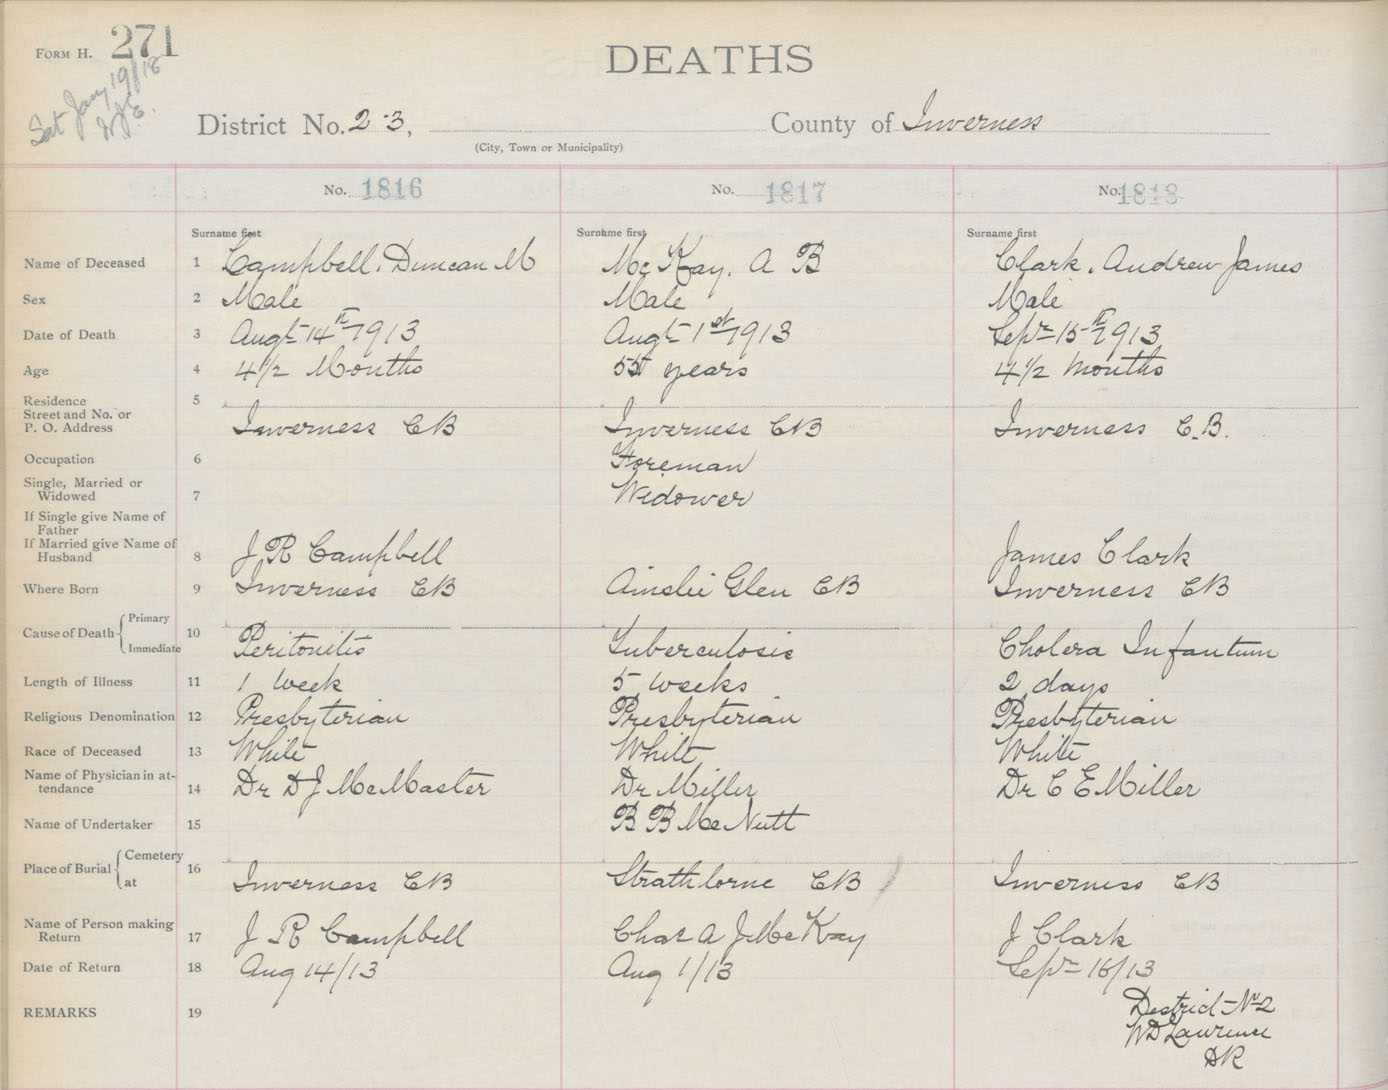 FORM H. 271
Sat Jany 19/18
DEATHS
District No. 2-3, County of Inverness
(City, Town or Municipality)
No. 1816 No. 1817 No. 1818
Surname first Surname first Surname first
Name of Deceased 1 Campbell, Duncan M McKay, A B Clark, Andrew James
Sex 2 Male Male Male
Date of Death 3 Augt 14th 1913 Augt 1st 1913 Sept 15th 1913
Age 4 4½ Months years 4½ months
Residence 5
Street and No. or
P. O. Address Inverness CB Inverness CB Inverness C.B.
Occupation 6 Foreman
Single, Married or
Widowed 7 Widower
If Single give Name of
Father
If Married give Name of
Husband 8 J R Campbell James Clark
Where Born 9 Inverness CB Ainslie Glen CB Inverness CB
Cause of Death { Primary
Immediate 10 Peritonitis Tuberculosis Cholera Infantum
Length of Illness 11 1 week 5 weeks 2 days
Religious Denomination 12 Presbyterian Presbyterian Presbyterian
Race of Deceased 13 White White White
Name of Physician in at-
tendance 14 Dr D J McMaster Dr Miller Dr C E Miller
Name of Undertaker 15 B B McNutt
Place of Burial { Cemetery
at 16 Inverness CB Strathlorne CB Inverness CB
Name of Person making
Return 17 J R Campbell Chas A J McKay J Clark
Date of Return 18 Aug 14/13 Aug 1/13 Sept 16/13
REMARKS 19 District No 2
WD Lawrence
DR